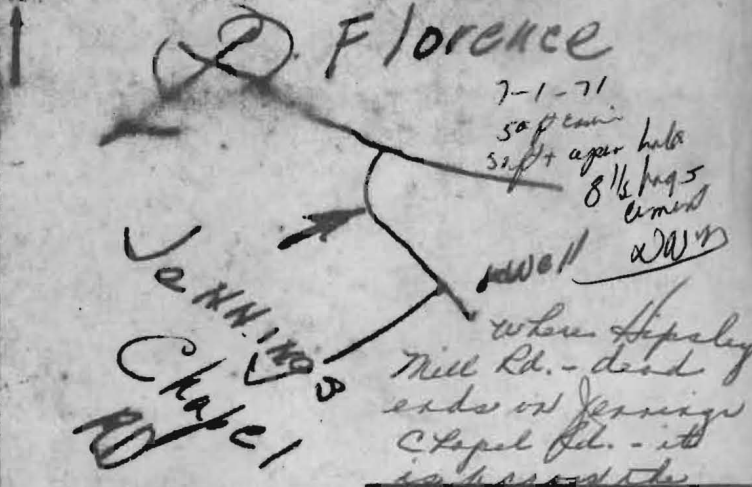 Florence
7-1-71
50 ft
50 ft open hole
8 1/2 bags
cement
well
Jennings
Chapel
RD
where Hipsley
Mill Rd. - dead
ends on Jennings
Chapel Rd. - it
is across the